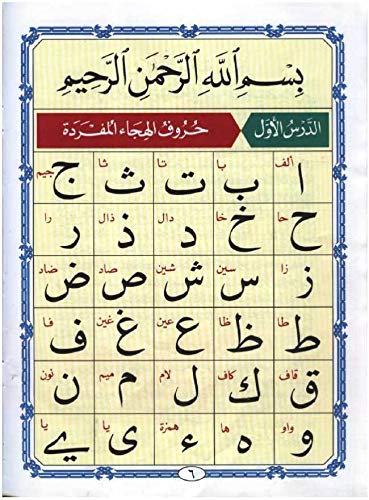 بِسْمِ اللَّهِ الرَّحْمَٰنِ الرَّحِيمِ
الدَّرْسُ الأَوَّل حُرُوفُ الهِجَاءِ المُفْرَدَة
ألف با تا ثا جيم
ا ب ت ث ج
حا خا دال ذال را
ح خ د ذ ر
زا سين شين صاد ضاد
ز س ش ص ض
طا ظا عين غين فا
ط ظ ع غ ف
قاف كاف لام ميم نون
ق ك ل م ن
واو ها همزة يا يا
و ه ء ى ے
٦